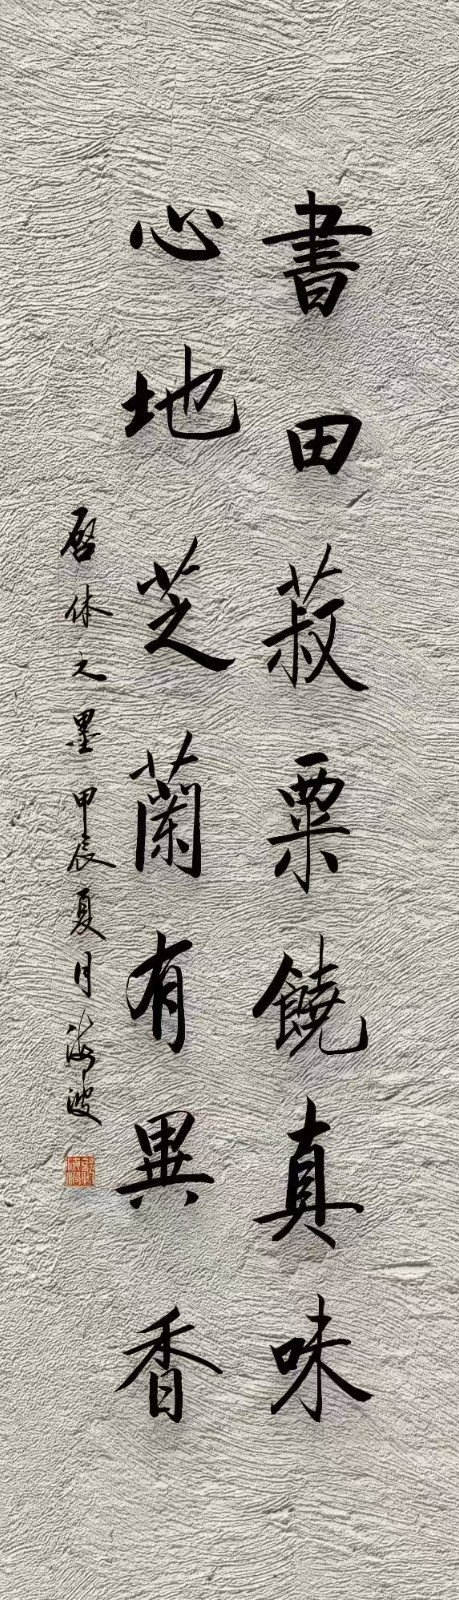 書田菽粟饒真味
心地芝蘭有異香
啓休之墨甲辰夏月海波